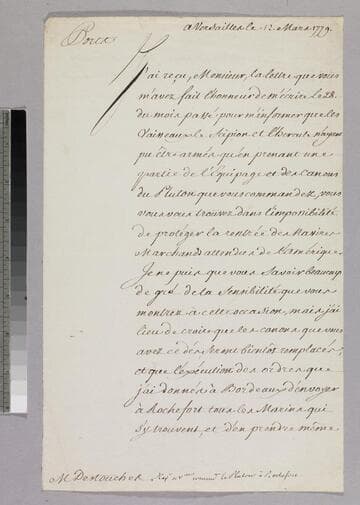 a Versailles le 12. Mars 1779.
Ports
J'ai reçu, Monsieur, la lettre que vous
m'avez fait l'honneur de m'écrire le 28.
du mois passé pour m'informer que les
Vaisseaux le Scipion et l'hercule n'ayant
pu être armés qu'en prenant une
partie de l'Equipage et des canons
du Pluton que vous commandez, vous
vous vous trouvez dans l'impossibilité
de protéger la rentrée des Navires
Marchands attendus de l'amérique.
Je ne puis que vous savoir beaucoup
de gré de la sensibilité que vous
montrez à cette occasion, mais j'ai
lieu de croire que les canons que vous
avez cédés seront bientôt remplacés,
et que l'exécution des ordres que
j'ai donnés à Bordeaux d'envoyer
à Rochefort tous les Marins qui
s'y trouvent, et d'en prendre même
M. Destouches
command.t le Pluton à Rochefort